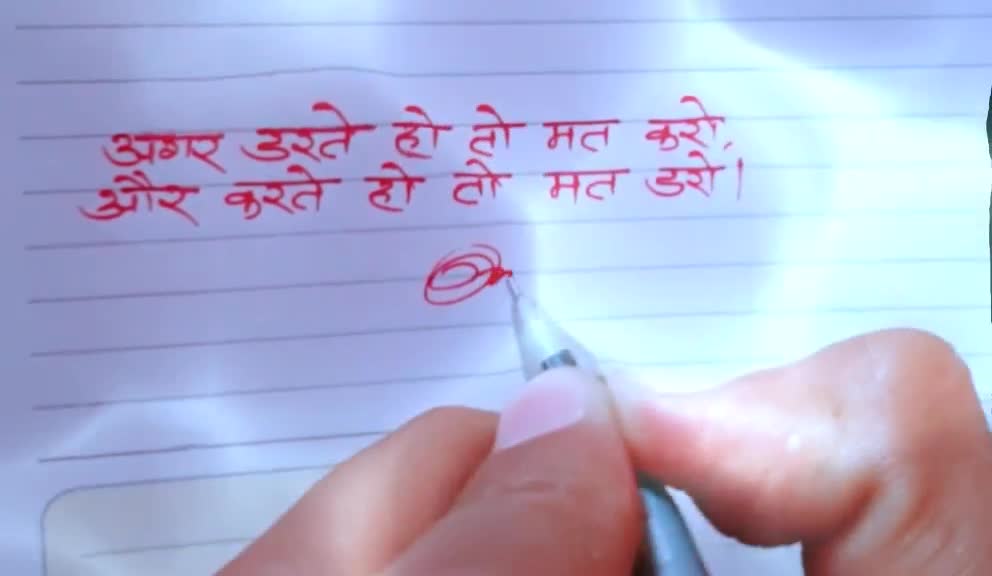 अगर डरते हो तो मत करो,
और करते हो तो मत डरो।